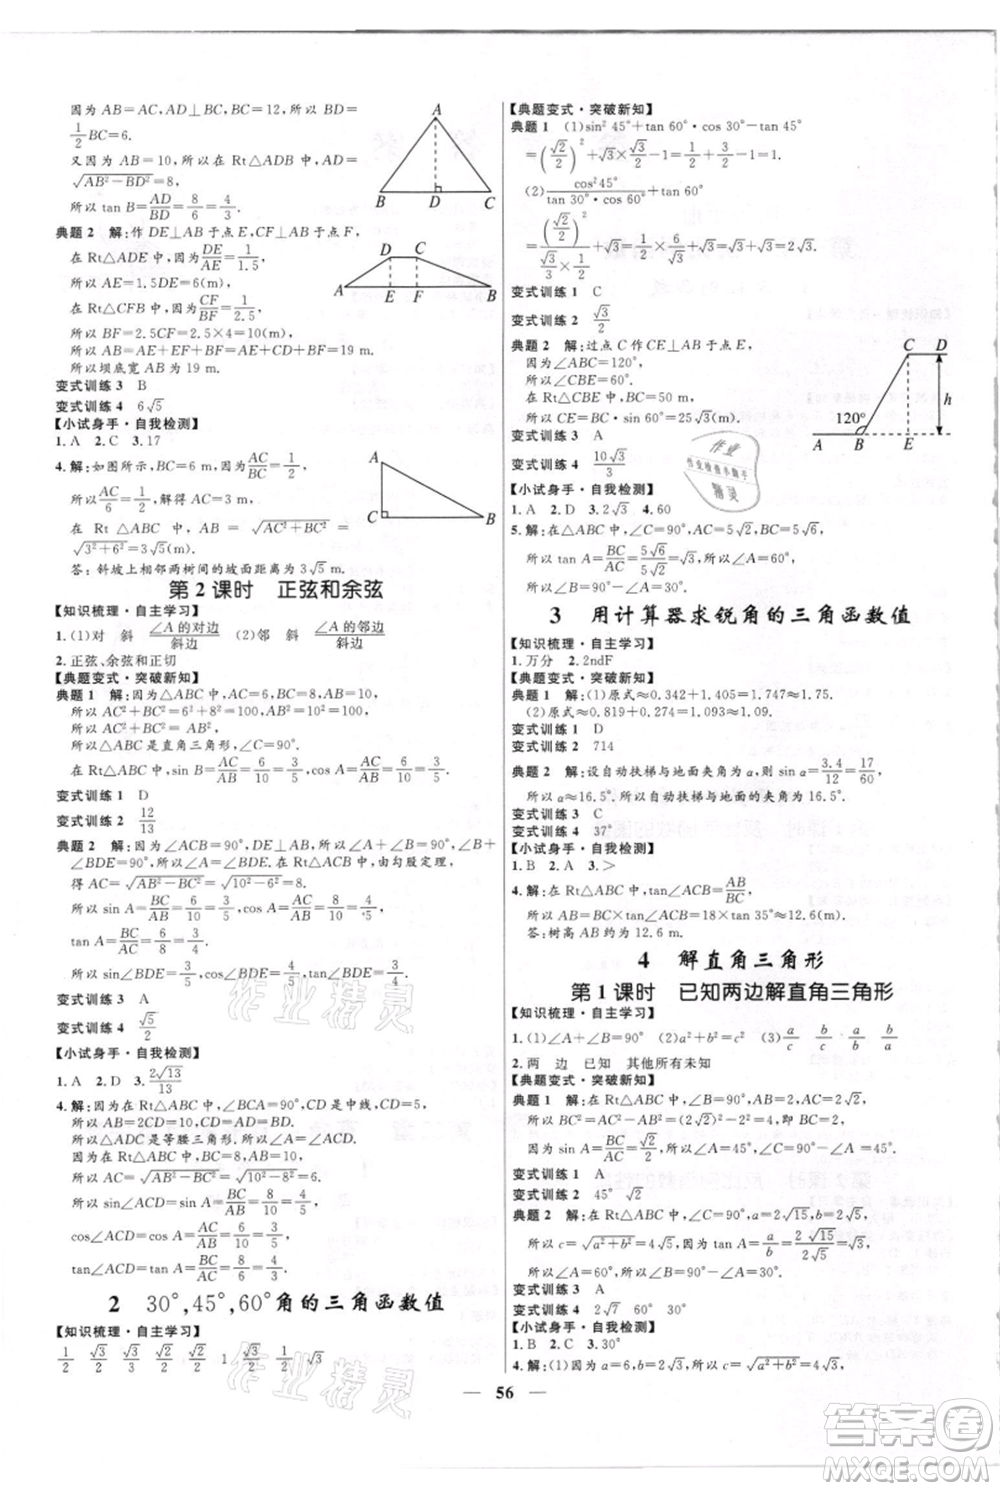 因为 AB=AC,AD⊥BC,BC=12,所以 BD=
1/2 BC=6.
又因为 AB=10,所以在 Rt△ADB 中,AD=
√(AB²-BD²)=8,
所以 tan B=AD/BD=8/6=4/3.
A
B D C
典题 2 解:作 DE⊥AB 于点 E,CF⊥AB 于点 F,
在 Rt△ADE 中,因为 DE/AE=1/1.5,
所以 AE=1.5DE=9(m).
在 Rt△CFB 中,因为 CF/BF=1/2.5,
所以 BF=2.5CF=2.5×4=10(m).
所以 AB=AE+EF+BF=AE+CD+BF=19 m.
所以坝底宽 AB 为 19 m.
D C
A E F B
变式训练 3 B
变式训练 4 6√5
【小试身手·自我检测】
1. A 2. C 3. 17
4. 解:如图所示,AC=6 m,因为 AC/BC=1/2,
所以 6/BC=1/2,解得 BC=12(m).
答:斜坡上相邻两树间的坡面距离为3√5 m.
A
C B
第 2 课时 正弦和余弦
【知识梳理·自主学习】
1. (1)对 斜 ∠A 的对边/斜边 (2)邻 斜 ∠A 的邻边/斜边
2. 正弦、余弦和正切
【典题变式·突破新知】
典题 1 解:因为△ABC 中,AC=6,BC=8,AB=10,
所以 AC²+BC²=6²+8²=100,AB²=10²=100,
所以 AC²+BC²=AB²,
所以△ABC 是直角三角形,∠C=90°.
在 Rt△ABC 中,sin B=AC/AB=6/10=3/5,cos A=AC/AB=6/10=3/5.
变式训练 1 D
变式训练 2 12/13
典题 2 解:因为∠ACB=90°,DE⊥AB,所以∠BDE+∠B=
∠A+∠B=90°,所以∠BDE=∠A,由勾股定理,
得 AC=√(AB²-BC²)=√(10²-6²)=8.
所以 sin A=BC/AB=6/10=3/5,cos A=AC/AB=8/10=4/5,
tan A=BC/AC=6/8=3/4.
所以 sin∠BDE=3/5,cos∠BDE=4/5,tan∠BDE=3/4.
变式训练 3 A
变式训练 4 √5/2
【小试身手·自我检测】
1. A 2. D 3. 2√13/13
4. 解:因为在 Rt△ABC 中,∠BCA=90°,CD是中线,CD=5,
所以 AB=2CD=10,CD=AD=BD.
所以△ADC 是等腰三角形,BC=8,所以∠ACD=∠A.
所以 AC=√(AB²-BC²)=√(10²-8²)=6.
所以 sin∠ACD=sin A=BC/AB=8/10=4/5,
cos∠ACD=cos A=AC/AB=6/10=3/5,
tan∠ACD=tan A=BC/AC=8/6=4/3.
2 30°,45°,60°角的三角函数值
【知识梳理·自主学习】
1/2 √3/2 √3/3 √2/2 √2/2 1 √3/2 1/2 √3
【典题变式·突破新知】
典题 1 (1)sin² 45°+tan 60°·cos 30°-tan 45°
=(√2/2)²+√3×√3/2-1=1/2+3/2-1=1.
(2)cos²45°/(tan 30°·cos 60°)+tan 60°
=(√2/2)²/(√3/3×1/2)+√3=√3+√3=2√3.
变式训练 1 C
变式训练 2 √3/2
典题 2 解:过点 C 作 CE⊥AB 于点 E,
因为∠ABC=120°,
所以∠CBE=60°.
在 Rt△CBE 中,BC=50 m,
所以 CE=BC·sin 60°=25√3(m).
C D
120° h
A B E
变式训练 3 A
变式训练 4 10√3/3
【小试身手·自我检测】
1. A 2. D 3. 2√3 4. 60
5. 解:在△ABC 中,因为∠C=90°,AC=5√2,BC=5√6,
所以 tan A=BC/AC=5√6/5√2=√3,所以∠A=60°.
所以∠B=90°-∠A=30°.
3 用计算器求锐角的三角函数值
【知识梳理·自主学习】
1. 万分 2. 2ndF
【典题变式·突破新知】
典题 1 解:(1)原式≈0.342+1.405=1.747≈1.75.
(2)原式≈0.819+0.274=1.093≈1.09.
变式训练 1 D
变式训练 2 714
典题 2 解:设自动扶梯与地面夹角为 α,所以sin α=3.4/12=17/60,
所以 α≈16.5°.所以自动扶梯与地面的夹角为 16.5°.
变式训练 3 C
变式训练 4 37°
【小试身手·自我检测】
1. B 2. A 3. >
4. 解:在 Rt△ABC 中,tan∠ACB=AB/BC,
所以 AB=BC×tan∠ACB=18×tan 35°≈12.6(m).
答:树高 AB 约为 12.6 m.
4 解直角三角形
第 1 课时 已知两边解直角三角形
【知识梳理·自主学习】
1. (1)∠A+∠B=90° (2)a²+b²=c² (3)a/c b/c a/b
2. 两 边 已知 其他所有未知
【典题变式·突破新知】
典题 1 解:在 Rt△ABC 中,∠B=90°,AB=2,AC=2√2,
所以 BC²=AC²-AB²=(2√2)²-2²=4,即 BC=2,
因为 sin A=BC/AC=2/2√2=√2/2,所以∠A=45°,∠C=90°-∠A=45°.
变式训练 1 A
变式训练 2 45° √2
典题 2 解:因为在 Rt△ABC 中,∠C=90°,a=2√15,b=2√5,
所以 c=√(a²+b²)=4√5,因为 tan A=a/b=2√15/2√5=√3,
所以∠A=60°,所以∠B=30°.
变式训练 3 A
变式训练 4 2√7 60° 30°
【小试身手·自我检测】
1. B 2. C 3. 30°
4. 解:(1)因为 a=6,b=2√3,所以 c=√(a²+b²)=4√3.
56
作业精灵
作业精灵
作业
作业检查小助手
精灵
答案卷
MXQE.COM